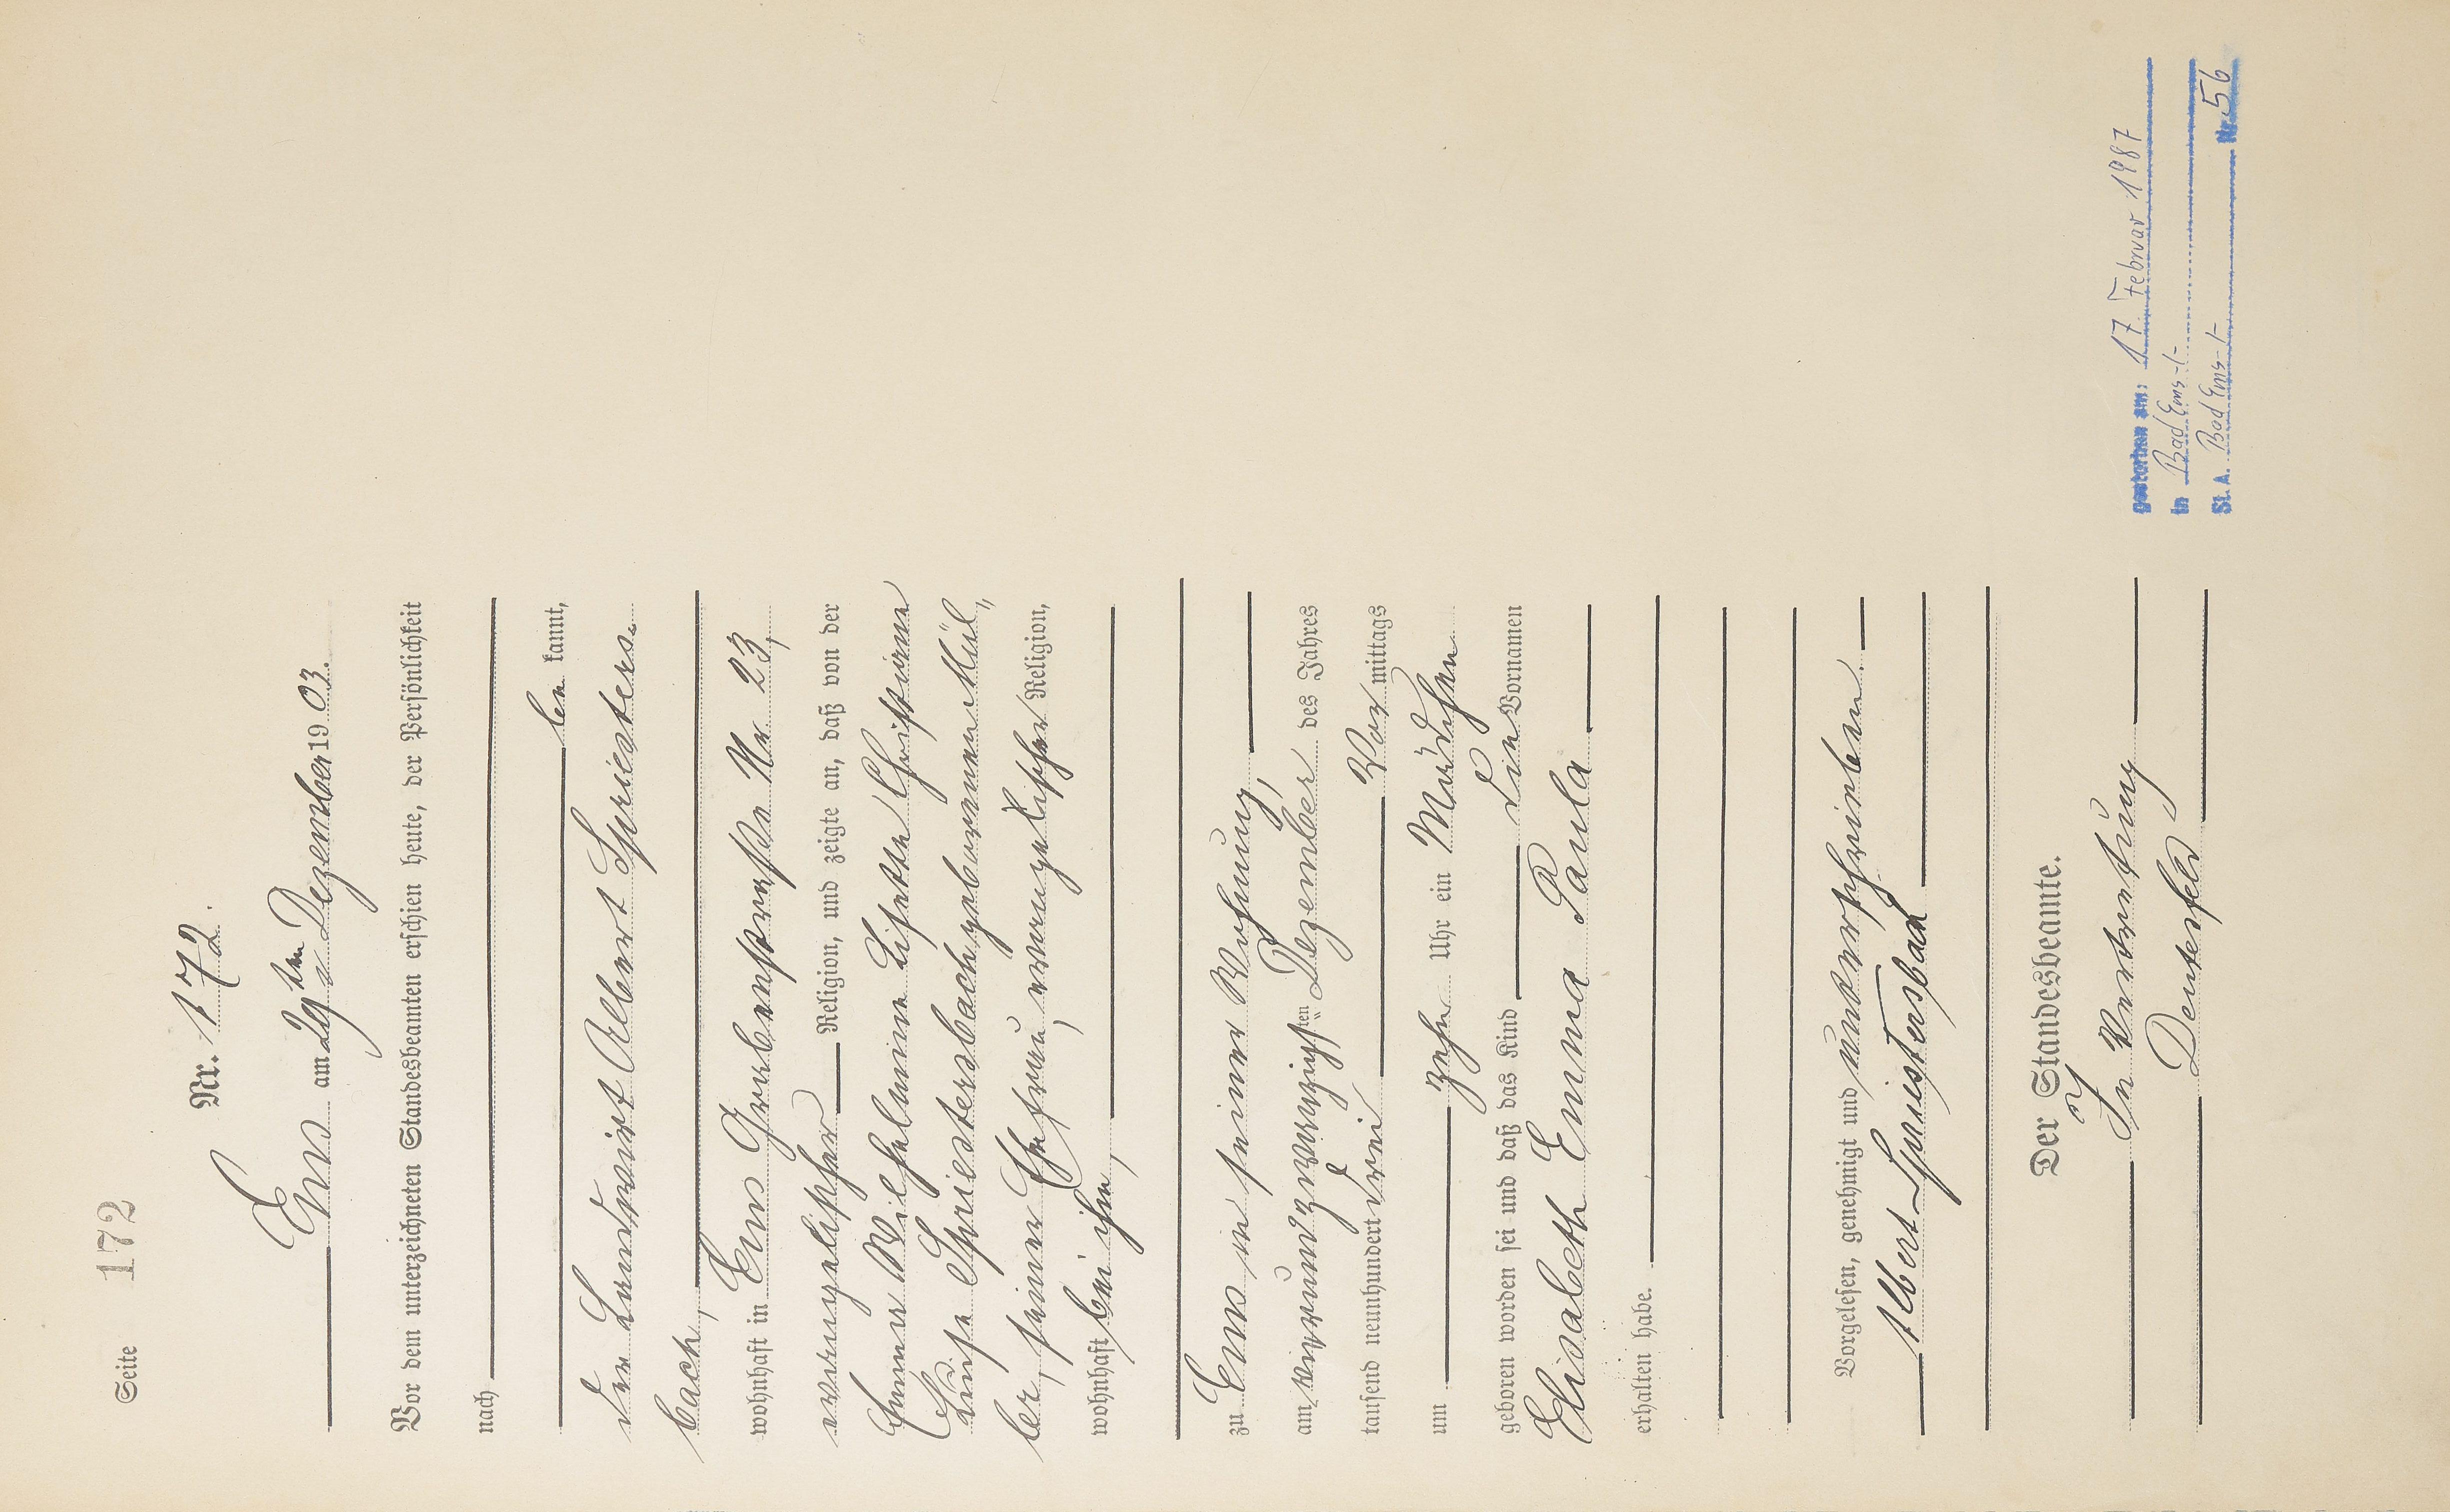 Seite 172
Nr. 172.
Ems am 29ten Dezember 1903.
Vor dem unterzeichneten Standesbeamten erschien heute, der Persönlichkeit
nach
be kannt,
der Landwirt Albert Spriesters-
bach,
wohnhaft in Ems Grabenstraße Nr 23,
evangelischer Religion, und zeigte an, daß von der
Emma Wilhelmine Lisette Christiane
Luise Spriestersbach geborenen Mül„
ler, seiner Ehefrau, evangelischer Religion,
wohnhaft bei ihm,
zu Ems in seiner Wohnung,
am vierundzwanzigsten Dezember des Jahres
tausend neunhundert drei Vor mittags
um zehn Uhr ein Mädchen
geboren worden sei und daß das Kind die Vornamen
Elisabeth Emma Paula
erhalten habe.
Vorgelesen, genehmigt und unterschrieben.
Albert Spriestersbach
Der Standesbeamte.
In Vertretung
gestorben am: 17. Februar 1987
in Bad Ems -/-
St. A. Bad Ems -/- Nr. 56